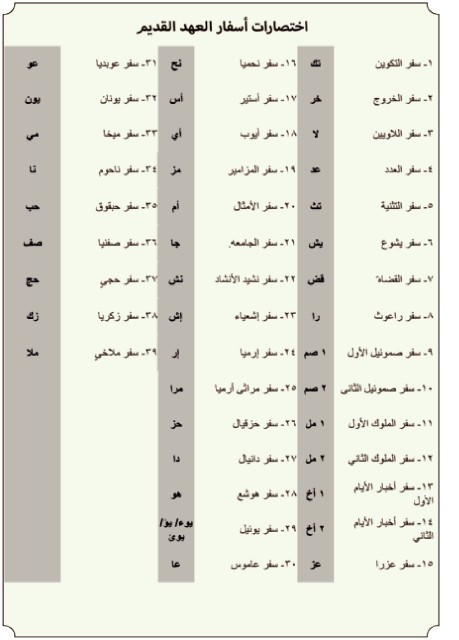 اختصارات أسفار العهد القديم
١- سفر التكوين تك
٢- سفر الخروج خر
٣- سفر اللاويين لا
٤- سفر العدد عد
٥- سفر التثنية تث
٦- سفر يشوع يش
٧- سفر القضاة قض
٨- سفر راعوث را
٩- سفر صموئيل الأول ١ صم
١٠- سفر صموئيل الثانى ٢ صم
١١- سفر الملوك الأول ١ مل
١٢- سفر الملوك الثاني ٢ مل
١٣- سفر أخبار الأيام
الأول ١ أخ
١٤- سفر أخبار الأيام
الثاني ٢ أخ
١٥- سفر عزرا عز
١٦- سفر نحميا نح
١٧- سفر أستير أس
١٨- سفر أيوب أي
١٩- سفر المزامير مز
٢٠- سفر الأمثال أم
٢١- سفر الجامعه. جا
٢٢- سفر نشيد الأنشاد نش
٢٣- سفر إشعياء إش
٢٤- سفر إرميا إر
٢٥- سفر مراثى أرميا مرا
٢٦- سفر حزقيال حز
٢٧- سفر دانيال دا
٢٨- سفر هوشع هو
٢٩- سفر يوئيل يوء/ يؤ/
يوئ
٣٠- سفر عاموس عا
٣١- سفر عوبديا عو
٣٢- سفر يونان يون
٣٣- سفر ميخا مي
٣٤- سفر ناحوم نا
٣٥- سفر حبقوق حب
٣٦- سفر صفنيا صف
٣٧- سفر حجي حج
٣٨- سفر زكريا زك
٣٩- سفر ملاخي ملا